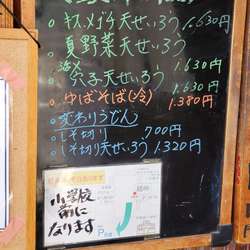 。キス、メゴチ天せいろう 1,630円
。夏野菜天せいろう
1,630円
。穴子天せいろう
1,630円
。ゆばそば(冷)
1,380円
。変わりうどん
。しそ切り 700円
。しそ切り天せいろう 1,320円
小学校
前に
なります
P